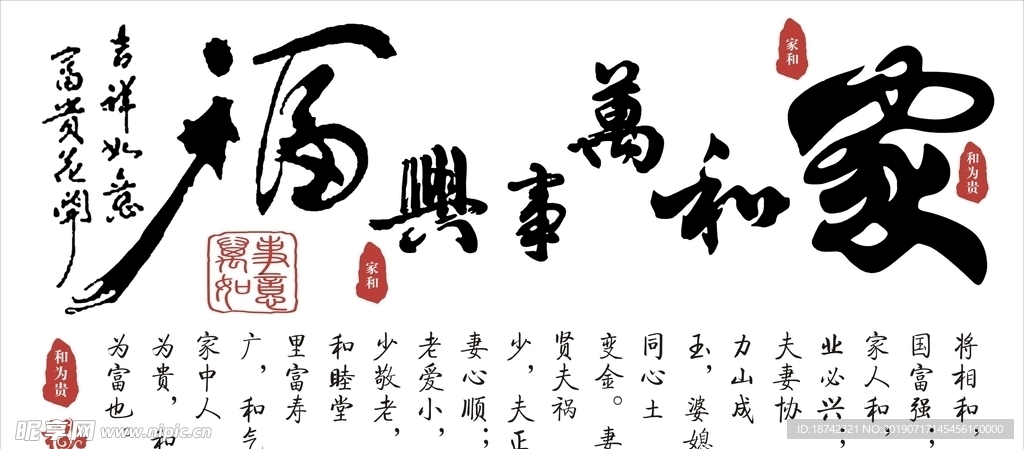 家和萬事興
福
吉祥如意
富贵花開
家和
和为贵
家和
萬事如意
和为贵
将相和，
国富强；
家人和，
业必兴；
夫妻协
力山成
玉，婆媳
同心土
变金。妻
贤夫祸
少，夫正
妻心顺；
老爱小，
少敬老，
和睦堂
里富寿
广，和气
家中人
为贵，和
为富也
昵享网 www.nipic.cn
ID:18742321 NO:20190717145456160000